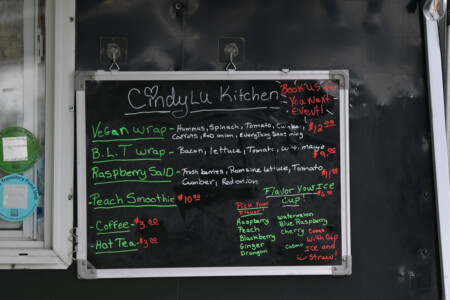 CindyLu Kitchen
Book us for
You Next
Event!
Vegan wrap - Hummus, Spinach, Tomato,
Carrots, Red onion, Everything Seasoning
$12.00
B.L.T wrap - Bacon, lettuce, Tomato, mayo
$9.00
Raspberry Salad - Fresh berries, Romaine lettuce, Tomato
Cumber, Red onion
$11.00
Peach Smoothie $10.00
Coffee - $3.00
Hot Tea - $3.00
Flavor You Ice
Cup!
Pick Your
Flavor!
Raspberry
Peach
Blackberry
Ginger
Dragon
watermelon
Blue Raspberry
Cherry
Cosmo
Comes
With Cup
Ice and
Straw!